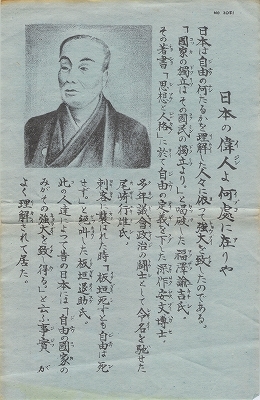 日本の偉人よ何處に在りや
日本は自由の何たるかを理解した人々に依つて強大を致したのである。
「國家の獨立はその國民の獨立より」と喝破した福澤諭吉氏。
その著書「思想と人格」に於て自由の定義を下した深作安文博士。
多年議會政治の鬪士として令名を馳せた
尾崎行雄氏。
刺客に襲はれた時「板垣死すとも自由は死
せず」と絶叫した板垣退助氏。
此の人達によつて昔の日本は「自由の國家の
みがその強大を致し得る」と云ふ事實が
よく理解されて居た。